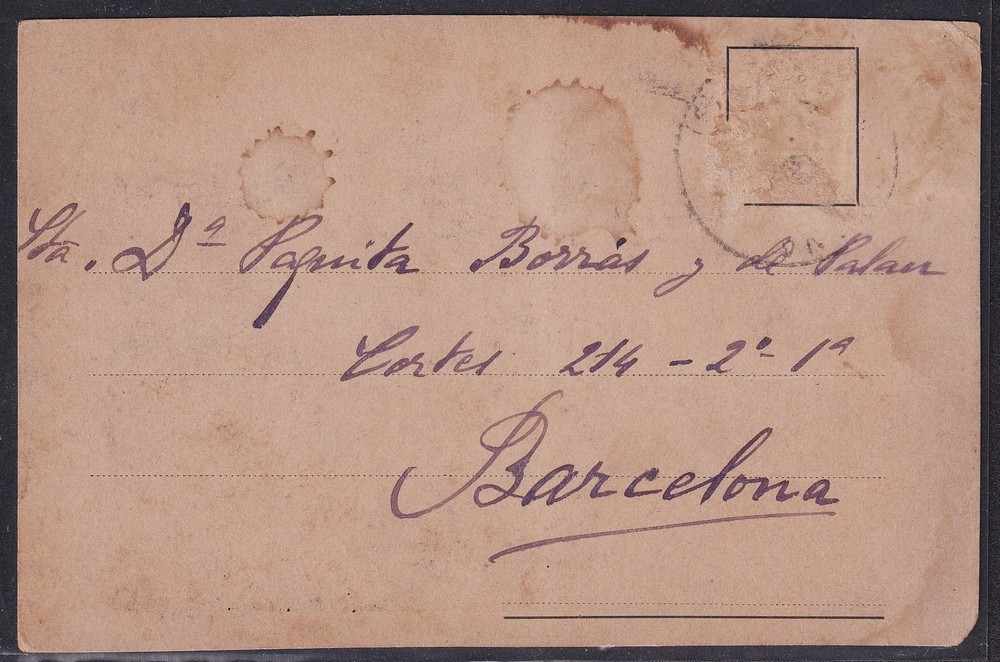 Sta. Dª Paquita Borrás y de Palau
Cortes 214 - 2º - 1ª
Barcelona